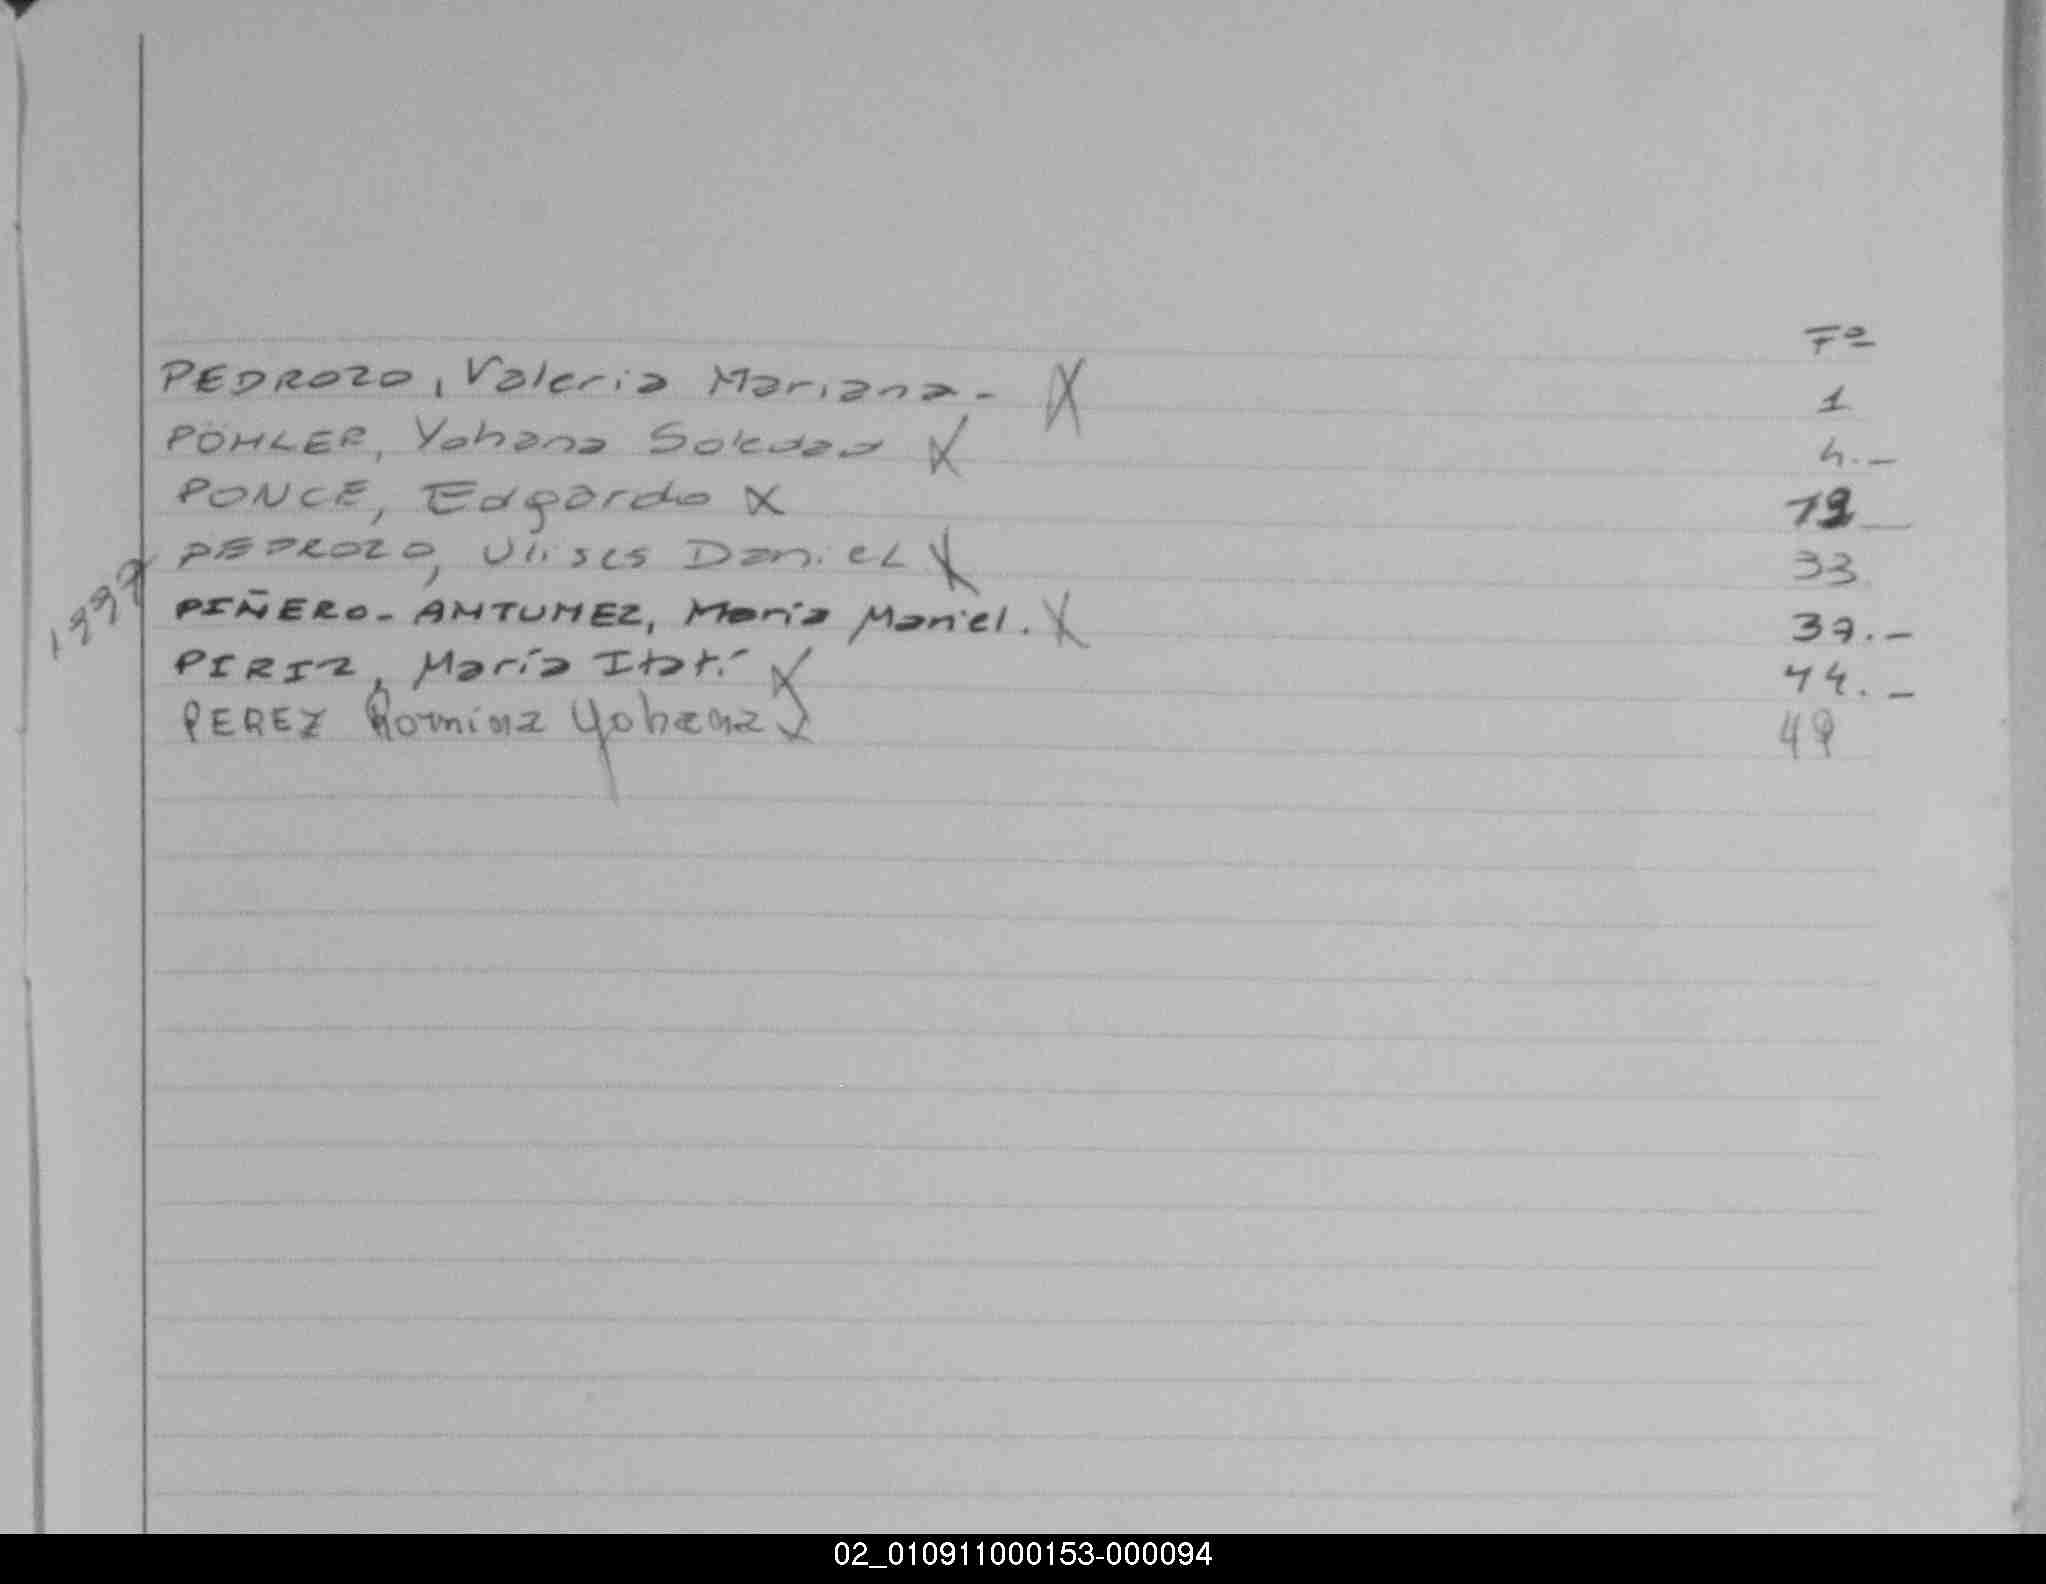 Fº
PEDROZO, Valeria Mariana.- X 1
PÖHLER, Yohana Soledad X 4.-
PONCE, Edgardo X
PEDROZO, Ulises Daniel X 33
PIÑERO-ANTUNEZ, María Mariel. X 37.-
PIRIZ, María Itatí X 44.-
PEREZ Romina Yohana X 49
02_010911000153-000094